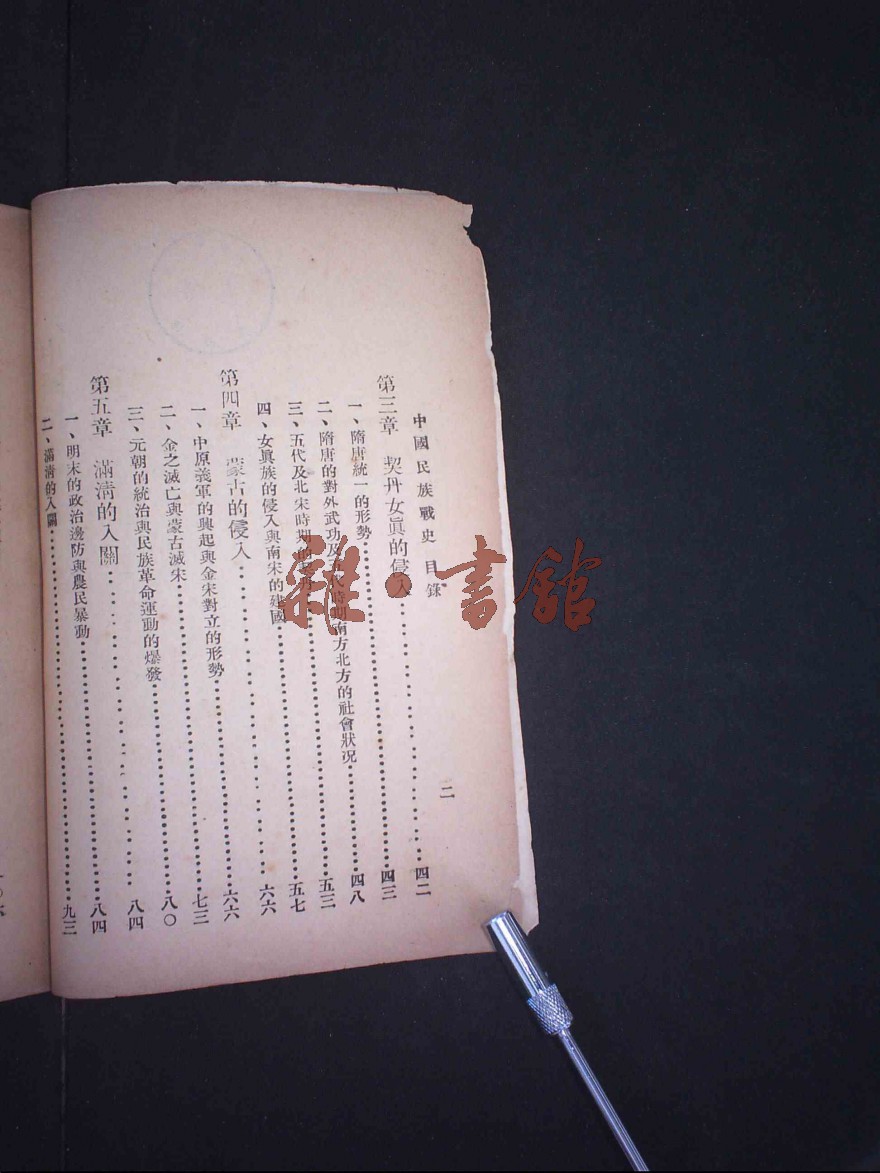 中國民族戰史 目錄 二
第三章 契丹女眞的侵入……四二
一、隋唐統一的形勢……四三
二、隋唐的對外武功及時期南方北方的社會狀況……四八
三、五代及北宋時期的……五三
四、女眞族的侵入與南宋的建國……五七
第四章 蒙古的侵入……六六
一、中原義軍的興起與金宋對立的形勢……六六
二、金之滅亡與蒙古滅宋……七三
三、元朝的統治與民族革命運動的爆發……八〇
第五章 滿清的入關……八四
一、明末的政治邊防與農民暴動……八四
二、滿清的入關……九三
雜·書館